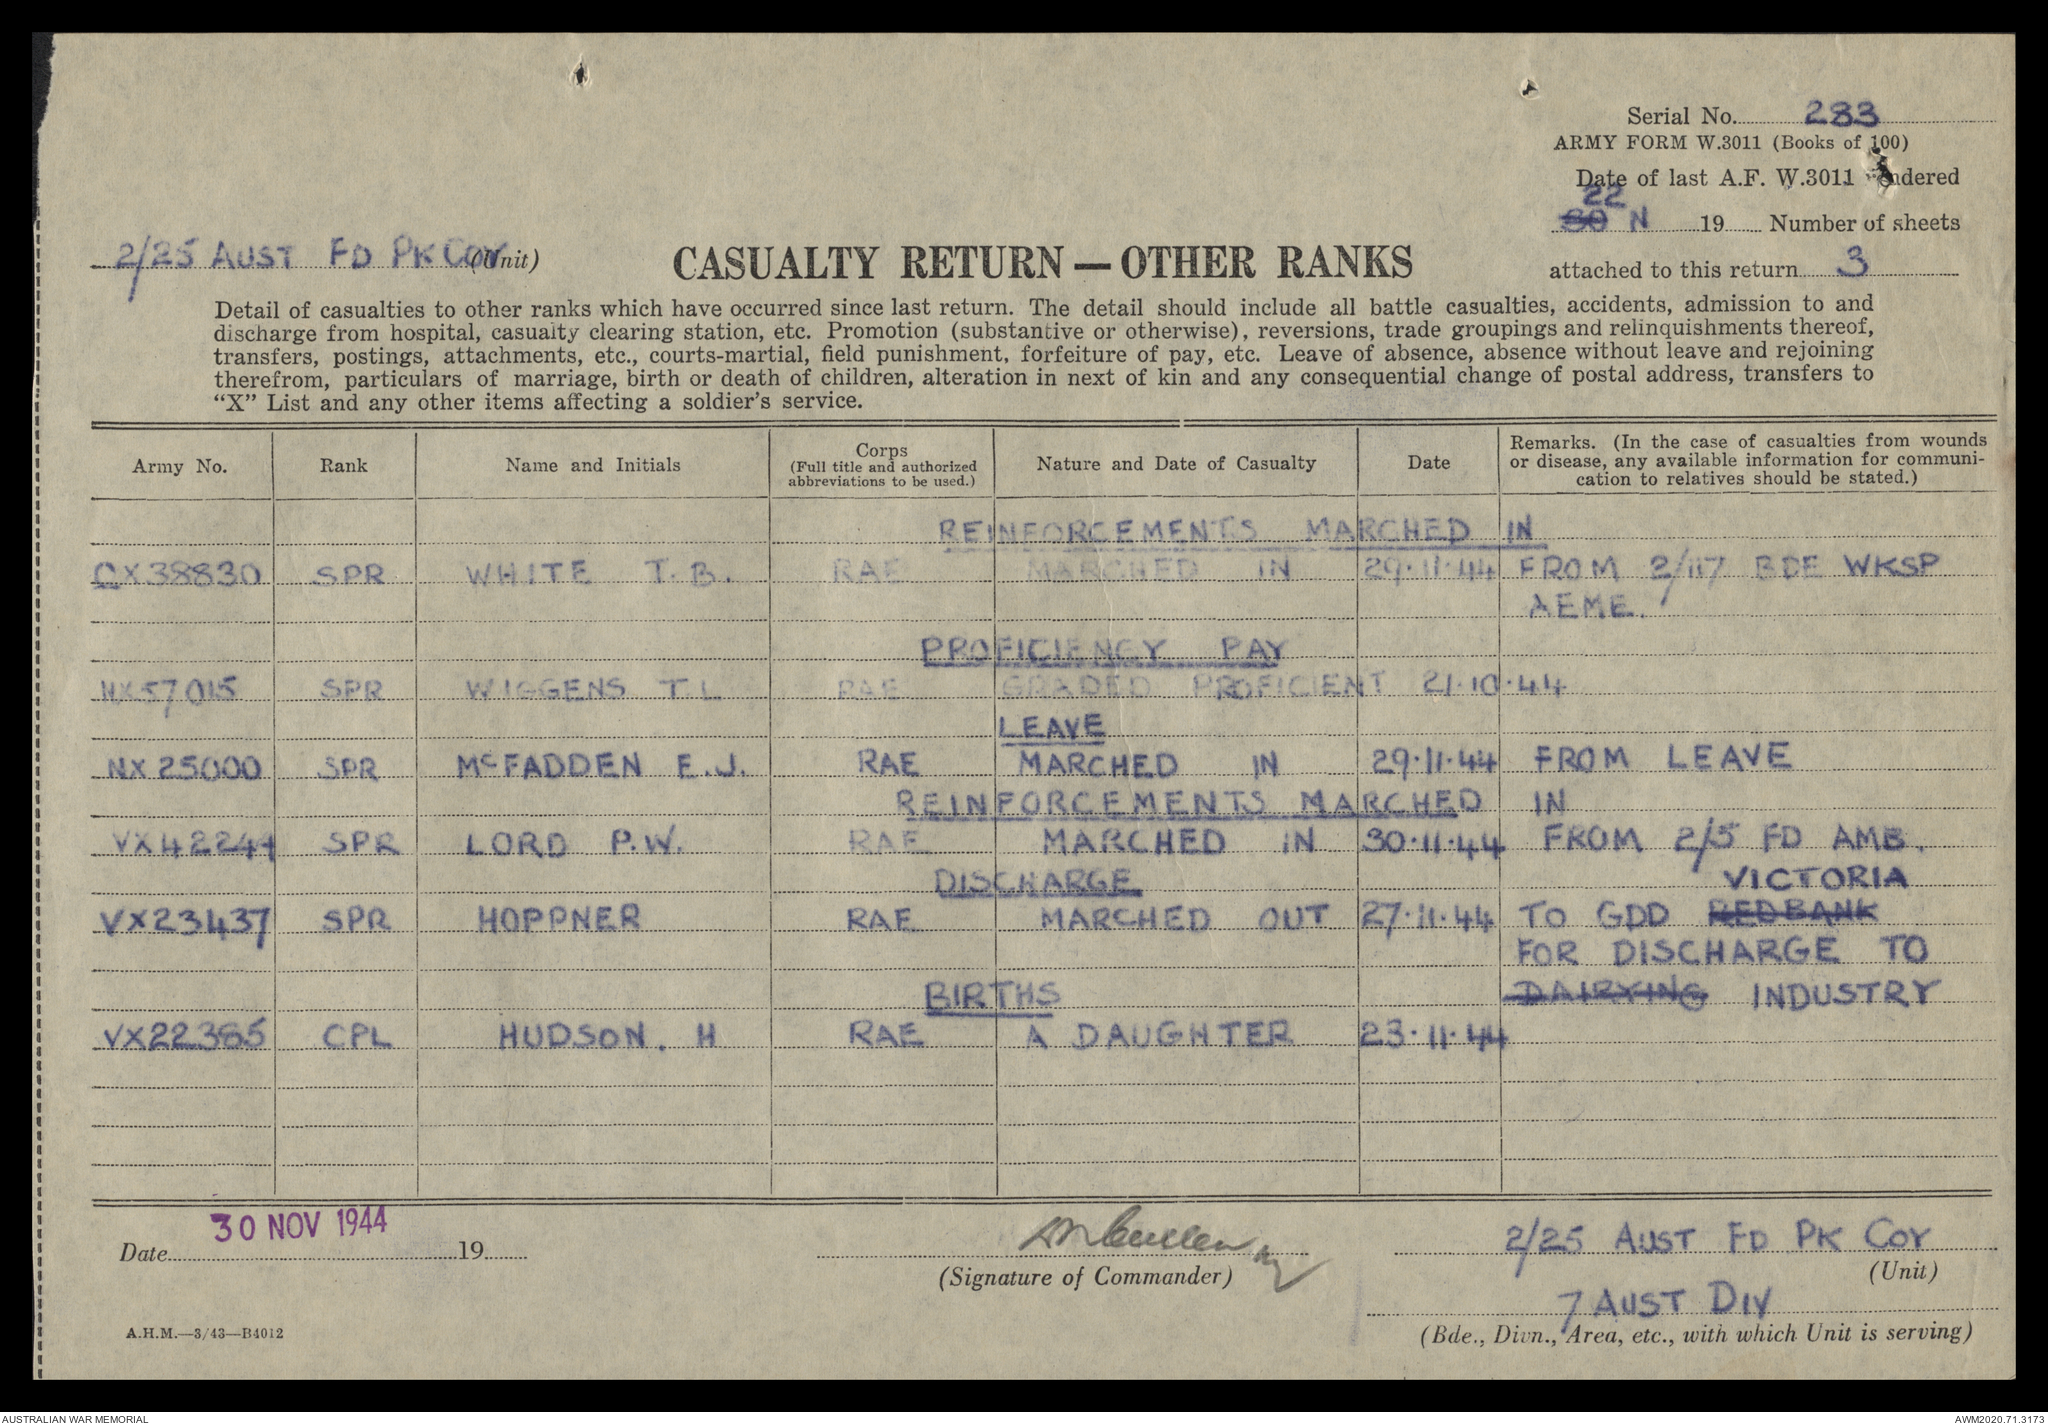 Serial No. 283
ARMY FORM W.3011 (Books of 100)
Date of last A.F. W.3011 rendered
22
30 N 19 Number of sheets
attached to this return 3
2/25 AUST FD PK COY (Unit)
CASUALTY RETURN — OTHER RANKS
Detail of casualties to other ranks which have occurred since last return. The detail should include all battle casualties, accidents, admission to and
discharge from hospital, casualty clearing station, etc. Promotion (substantive or otherwise), reversions, trade groupings and relinquishments thereof,
transfers, postings, attachments, etc., courts-martial, field punishment, forfeiture of pay, etc. Leave of absence, absence without leave and rejoining
therefrom, particulars of marriage, birth or death of children, alteration in next of kin and any consequential change of postal address, transfers to
"X" List and any other items affecting a soldier's service.
Army No. Rank Name and Initials Corps (Full title and authorized abbreviations to be used.) Nature and Date of Casualty Date Remarks. (In the case of casualties from wounds or disease, any available information for communi-cation to relatives should be stated.)
REINFORCEMENTS MARCHED IN
CX38830 SPR WHITE T.B. RAE MARCHED IN 29.11.44 FROM 2/117 BDE WKSP
AEME.
PROFICIENCY PAY
NX57015 SPR WIGGENS T.L RAE GRADED PROFICIENT 21.10.44
LEAVE
NX25000 SPR McFADDEN E.J. RAE MARCHED IN 29.11.44 FROM LEAVE
REINFORCEMENTS MARCHED IN
VX42244 SPR LORD P.W. RAE MARCHED IN 30.11.44 FROM 2/5 FD AMB.
DISCHARGE VICTORIA
VX23437 SPR HOPPNER RAE MARCHED OUT 27.11.44 TO GDD REDBANK
FOR DISCHARGE TO
BIRTHS DAIRYING INDUSTRY
VX22385 CPL HUDSON. H RAE A DAUGHTER 23.11.44
30 NOV 1944
Date 19
(Signature of Commander)
2/25 AUST FD PK COY
(Unit)
7 AUST DIV
(Bde., Divn., Area, etc., with which Unit is serving)
A.H.M.—3/43—B4012
AUSTRALIAN WAR MEMORIAL
AWM2020.71.3173